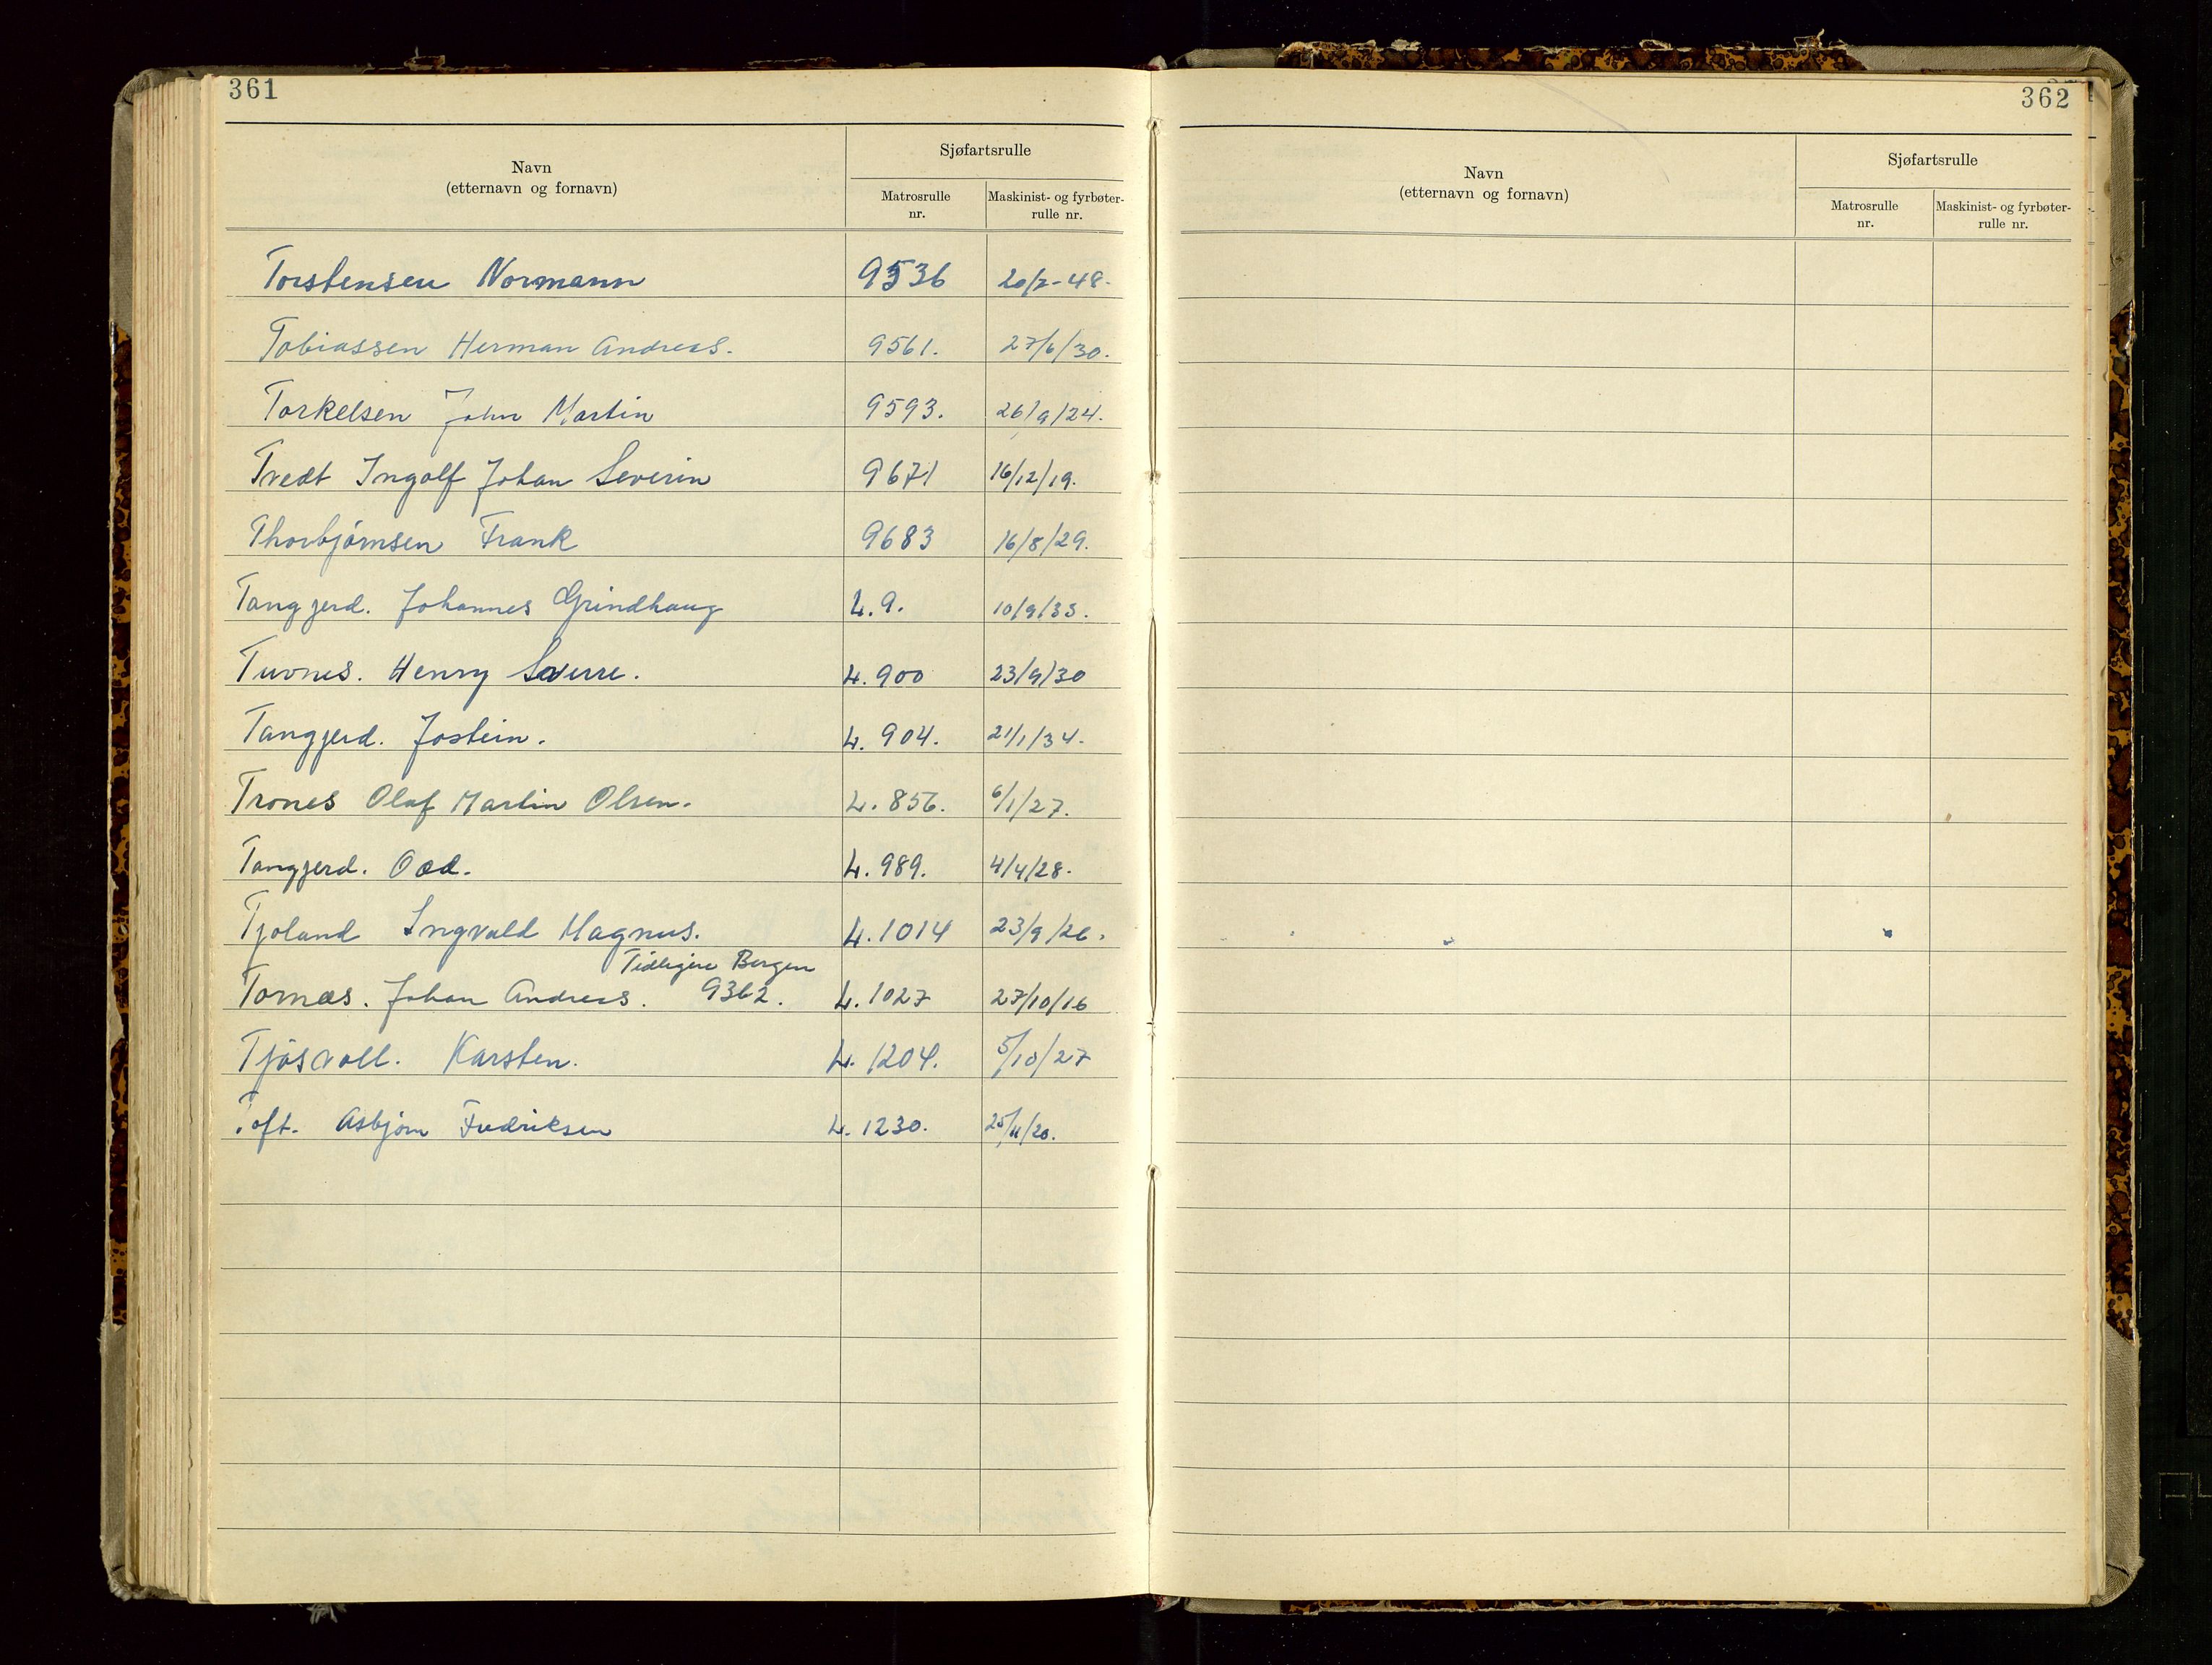 361
Navn
(etternavn og fornavn)
Sjøfartsrulle
Matrosrulle
nr.
Maskinist- og fyrbøter-
rulle nr.
Torstensen Normann 9536 20/7-48.
Tobiassen Herman Andreas. 9561. 27/6/30.
Torkelsen John Martin 9593. 26/9/24.
Tvedt Ingolf Johan Severin 9671 16/12/19.
Thorbjørnsen Frank 9683 16/8/29.
Tangjerd. Johannes Grindhaug L.9. 10/9/35.
Tuvnes. Henry Sverre. L. 900 23/9/30
Tangjerd. Jostein. L. 904. 21/1/34.
Trones Olaf Martin Olsen. L. 856. 6/1/27.
Tangjerd. Odd. L. 989. 4/4/28.
Tjoland Ingvald Magnus. L. 1014 23/9/26.
Tidligere Bergen
Tornæs. Johan Andreas. 9362. L. 1027 27/10/16
Tjøsvoll. Karsten. L. 1204. 5/10/27
Toft. Asbjørn Fredriksen L. 1230. 25/11/20.
362
Navn
(etternavn og fornavn)
Sjøfartsrulle
Matrosrulle
nr.
Maskinist- og fyrbøter-
rulle nr.